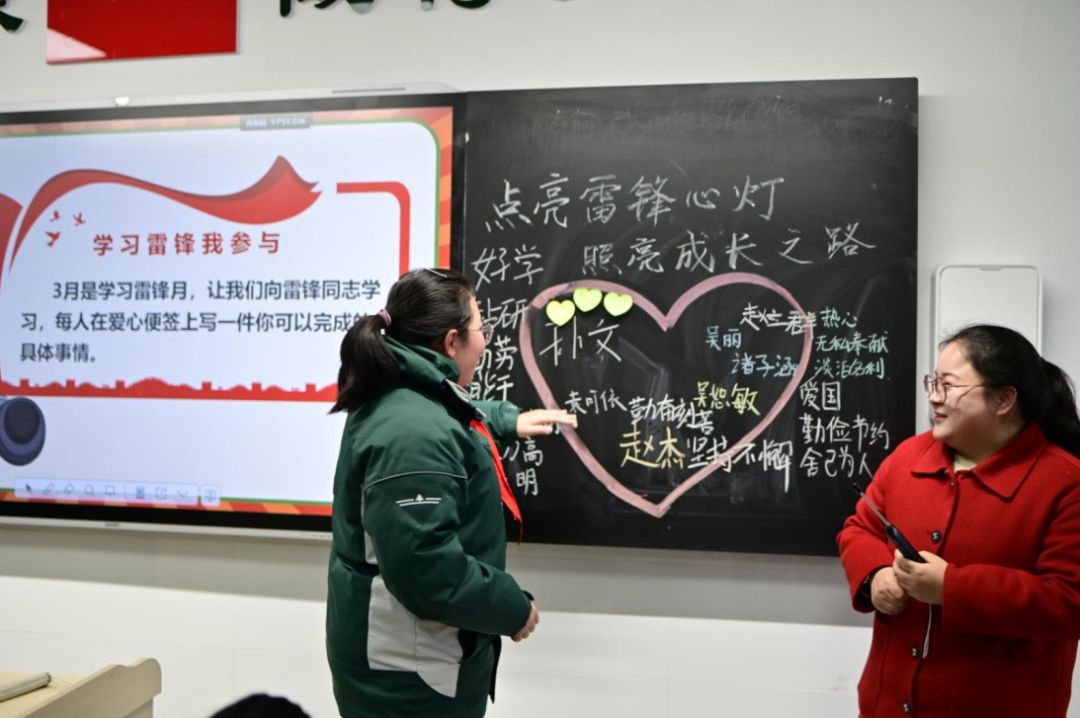 学习雷锋我参与
3月是学习雷锋月，让我们向雷锋同志学
习，每人在爱心便签上写一件你可以完成的
具体事情。
点亮雷锋心灯
照亮成长之路
好学
钻研
勤劳
能干
高
明
朴文
袁可依
勤奋刻苦
吴恕敏
赵杰
坚持不懈
吴丽
诸子涵
热心
无私奉献
淡泊名利
爱国
勤俭节约
舍己为人